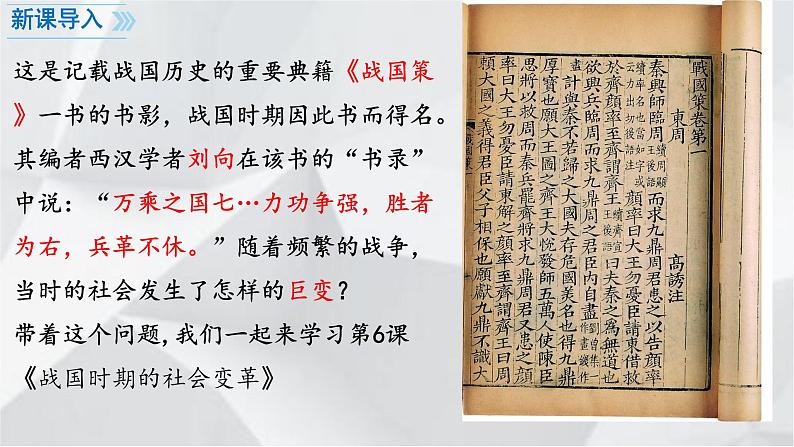 新课导入
这是记载战国历史的重要典籍《战国策
》一书的书影，战国时期因此书而得名。
其编者西汉学者刘向在该书的“书录”
中说：“万乘之国七…力功争强，胜者
为右，兵革不休。”随着频繁的战争，
当时的社会发生了怎样的巨变？
带着这个问题,我们一起来学习第6课
《战国时期的社会变革》
戰國策卷第一
東周 高誘注
秦興師臨周 續周顯王後語 而求九鼎周君患之以告顏率
顏率曰大王勿憂臣請東借救
於齊顏率至齊謂齊王 續齊宣王後語 曰夫秦之為無道也
欲興兵臨周而求九鼎周之君臣內自盡
計與秦不若歸之大國夫存危國美名也得九鼎
厚寶也願大王圖之齊王大悅發師五萬人使陳臣
思將以救周而秦兵罷齊將求九鼎周君又患之顏
率曰大王勿憂臣請東解之顏率至齊謂齊王曰周
賴大國之義得君臣父子相保也願獻九鼎不識大